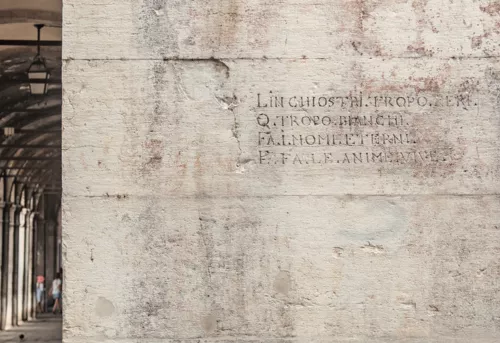 LIN CHIOSTRI.TROPO.NERI.
O.TROPO.BIANCHI.
FA.I.NOMI.ETERNI.
E.FA.LE.ANIME.VIVE.